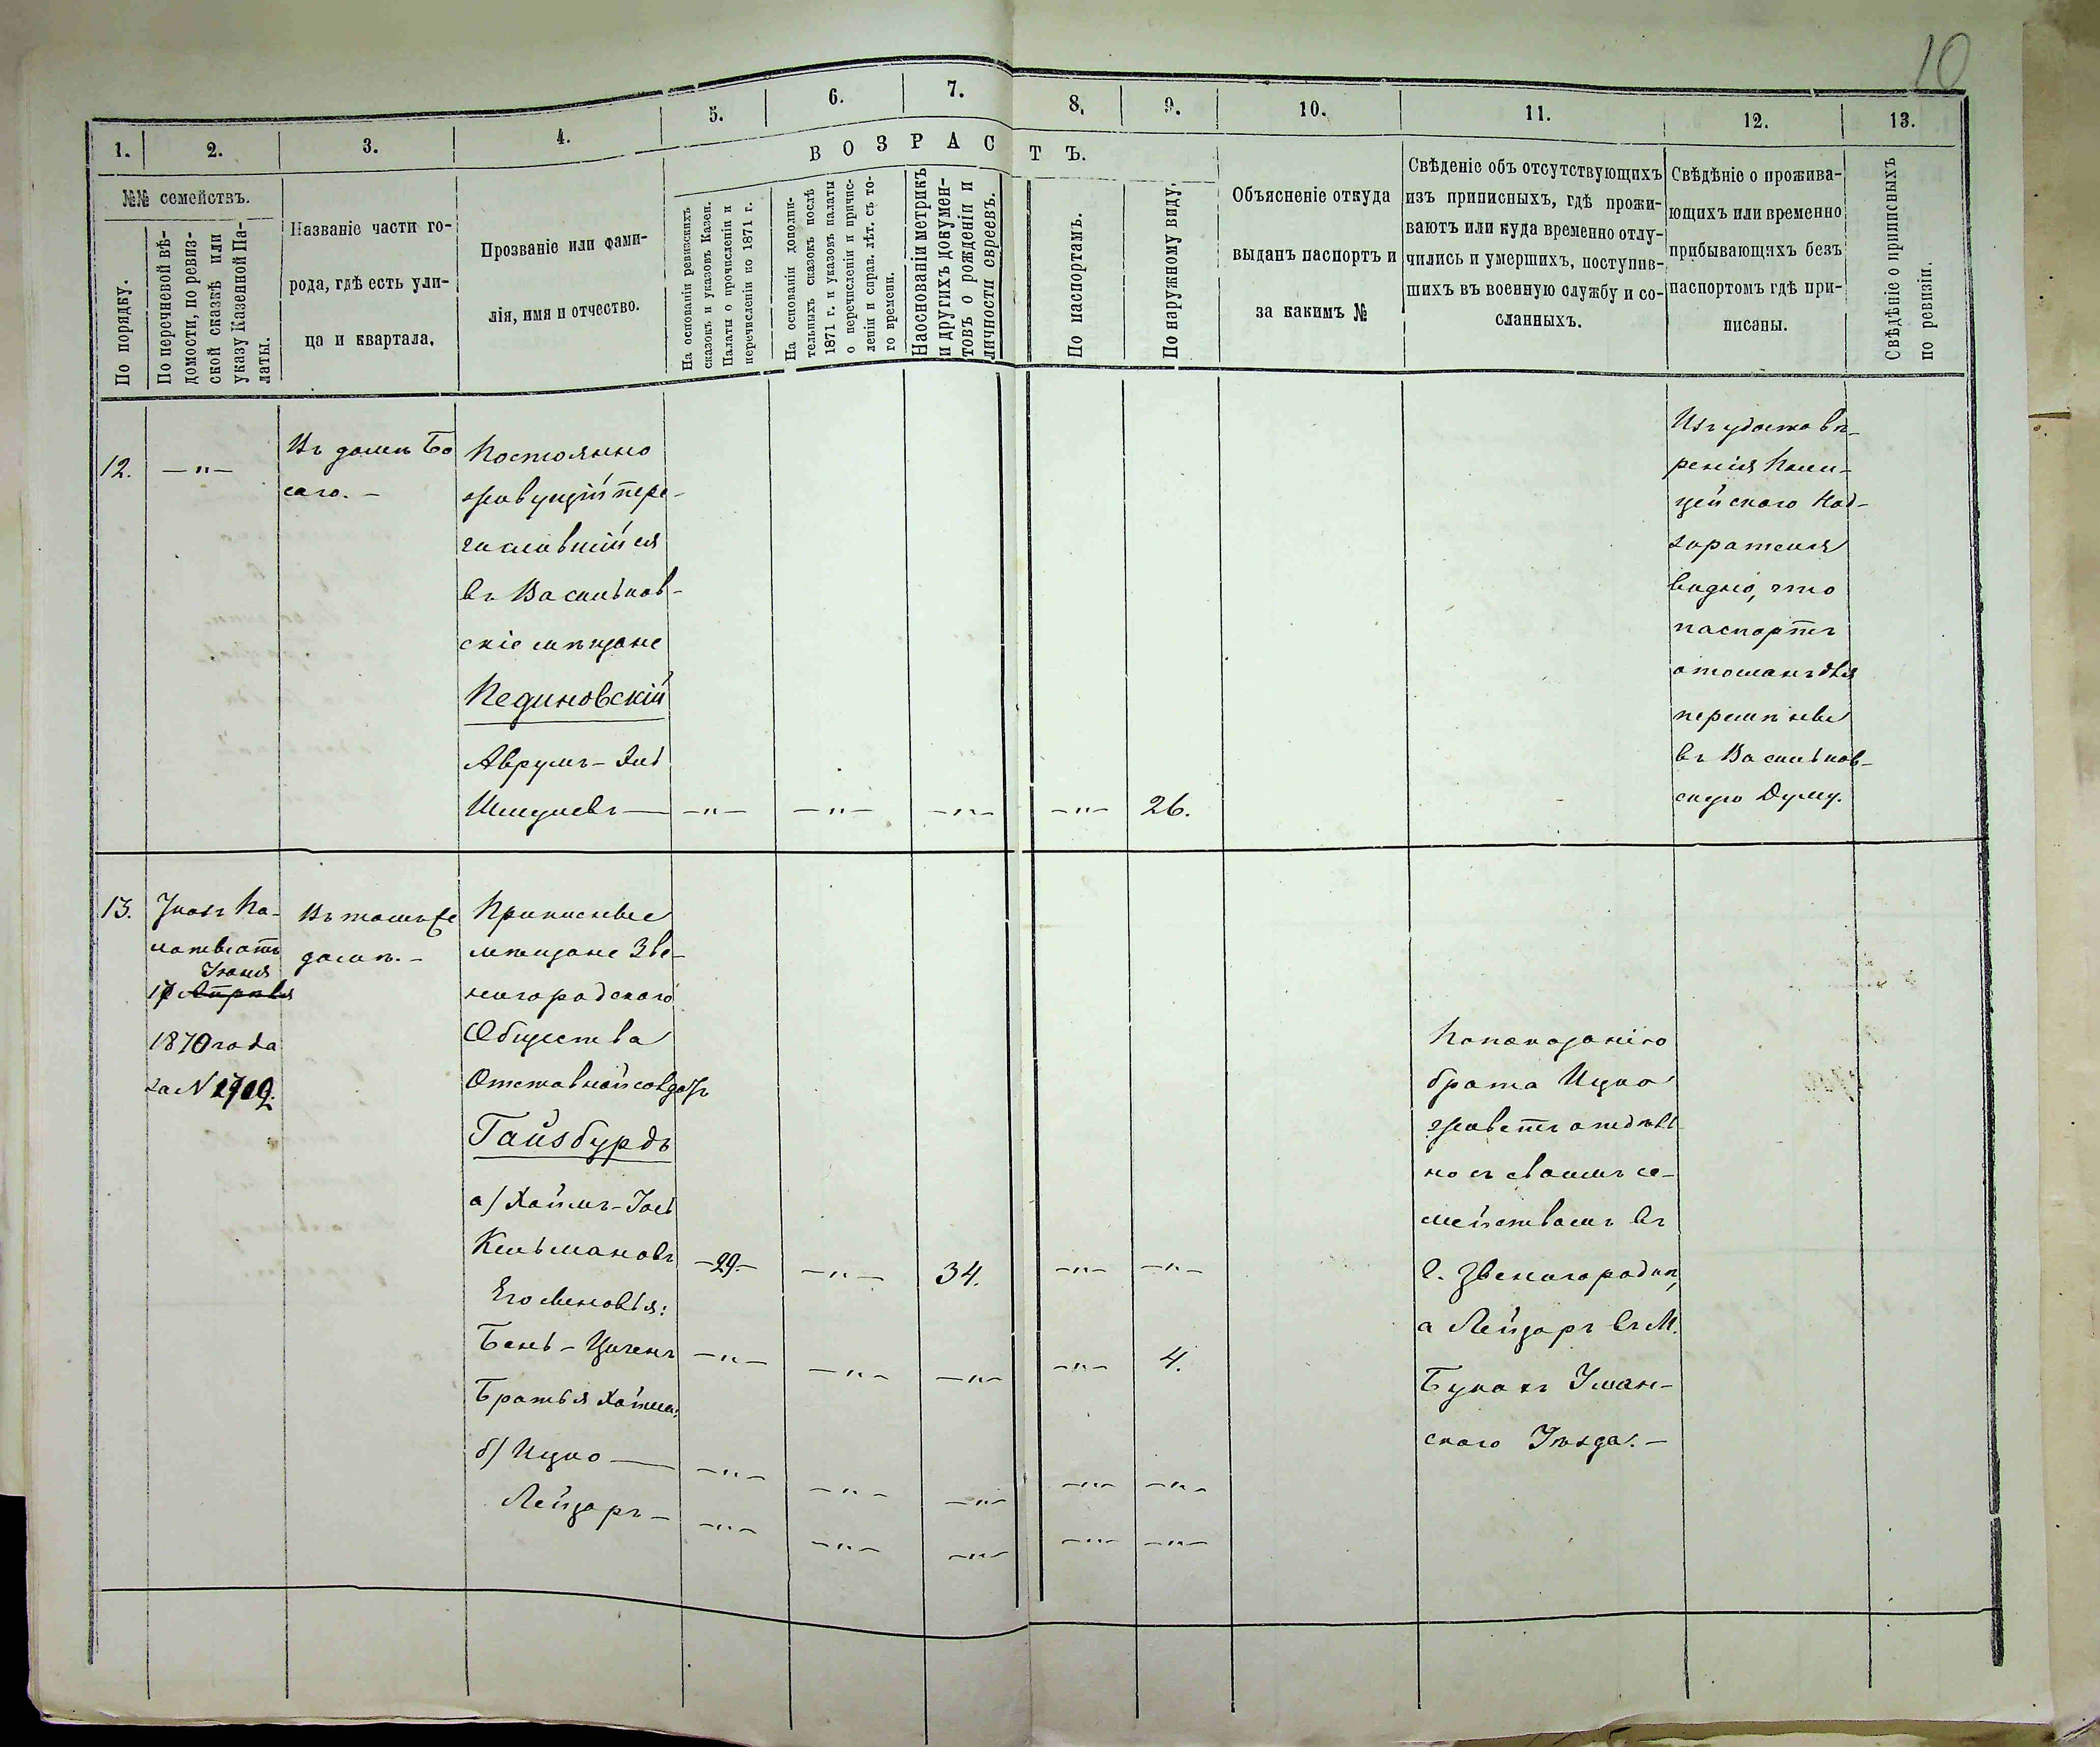 10
1.
2.
3.
4.
5.
6.
7.
8.
9.
10.
11.
12.
13.
В О З Р А С Т Ъ.
№№ семействъ.
По порядку.
По перечневой вѣ-
домости, по ревиз-
ской сказкѣ или
указу Казенной Па-
латы.
Названіе части го-
рода, гдѣ есть ули-
ца и квартала.
Прозваніе или фами-
лія, имя и отчество.
На основаніи ревизскихъ
сказокъ и указовъ Казен.
Палаты о прочисленіи и
перечисленіи по 1871 г.
На основаніи дополни-
тельныхъ сказокъ послѣ
1871 г. и указовъ палаты
о перечисленіи и причис-
леніи и справ. лѣт. съ то-
го времени.
На основаніи метрикъ
и другихъ докумен-
товъ о рожденіи и
личности евреевъ.
По паспортамъ.
По наружному виду.
Объясненіе откуда
выданъ паспортъ и
за какимъ №
Свѣденіе объ отсутствующихъ
изъ приписныхъ, гдѣ прожи-
ваютъ или куда временно отлу-
чились и умершихъ, поступив-
шихъ въ военную службу и со-
сланныхъ.
Свѣдѣніе о прожива-
ющихъ или временно
прибывающяхъ безъ
паспортомъ гдѣ при-
писаны.
Свѣдѣніе о приписныхъ
по ревизіи.
12.
— " —
Въ домѣ Бо
саго. —
Постоянно
живущій пере-
числившійся
въ Васильков-
скіе мѣщане
Пединовскій
Аврумъ - Эль
Шмулевъ — — " — — " — — " — — " — 26.
Изъ удостовѣ-
ренія Поли-
цейскаго Над-
зирателя
видно, что
паспортъ
отосланъ для
перемѣны
въ Васильков-
скую Думу.
13.
Указъ Па-
латы отъ
Іюня
17 Апрѣля
1870 года
за N
Въ томъ же
домѣ. —
Приписные
мѣщане Зве-
нигородскаго
Общества
Отставной солдатъ
Гайзбурдъ
а) Хаимъ - Іось
Кельмановъ — 29. — — " — 34. — " — — " —
Его сыновья:
Бень - Ционъ — " — — " — — " — — " — 4.
Братья Хаима:
б) Ицко — — " — — " — — " — — " — — " —
Лейзоръ — — " — — " — — " — — " — — " —
По показанію
брата Ицко
живетъ отдѣль
но съ своимъ се-
мействомъ въ
г. Звенигородкѣ,
а Лейзоръ въ М.
Букахъ Уман-
скаго Уѣзда. —